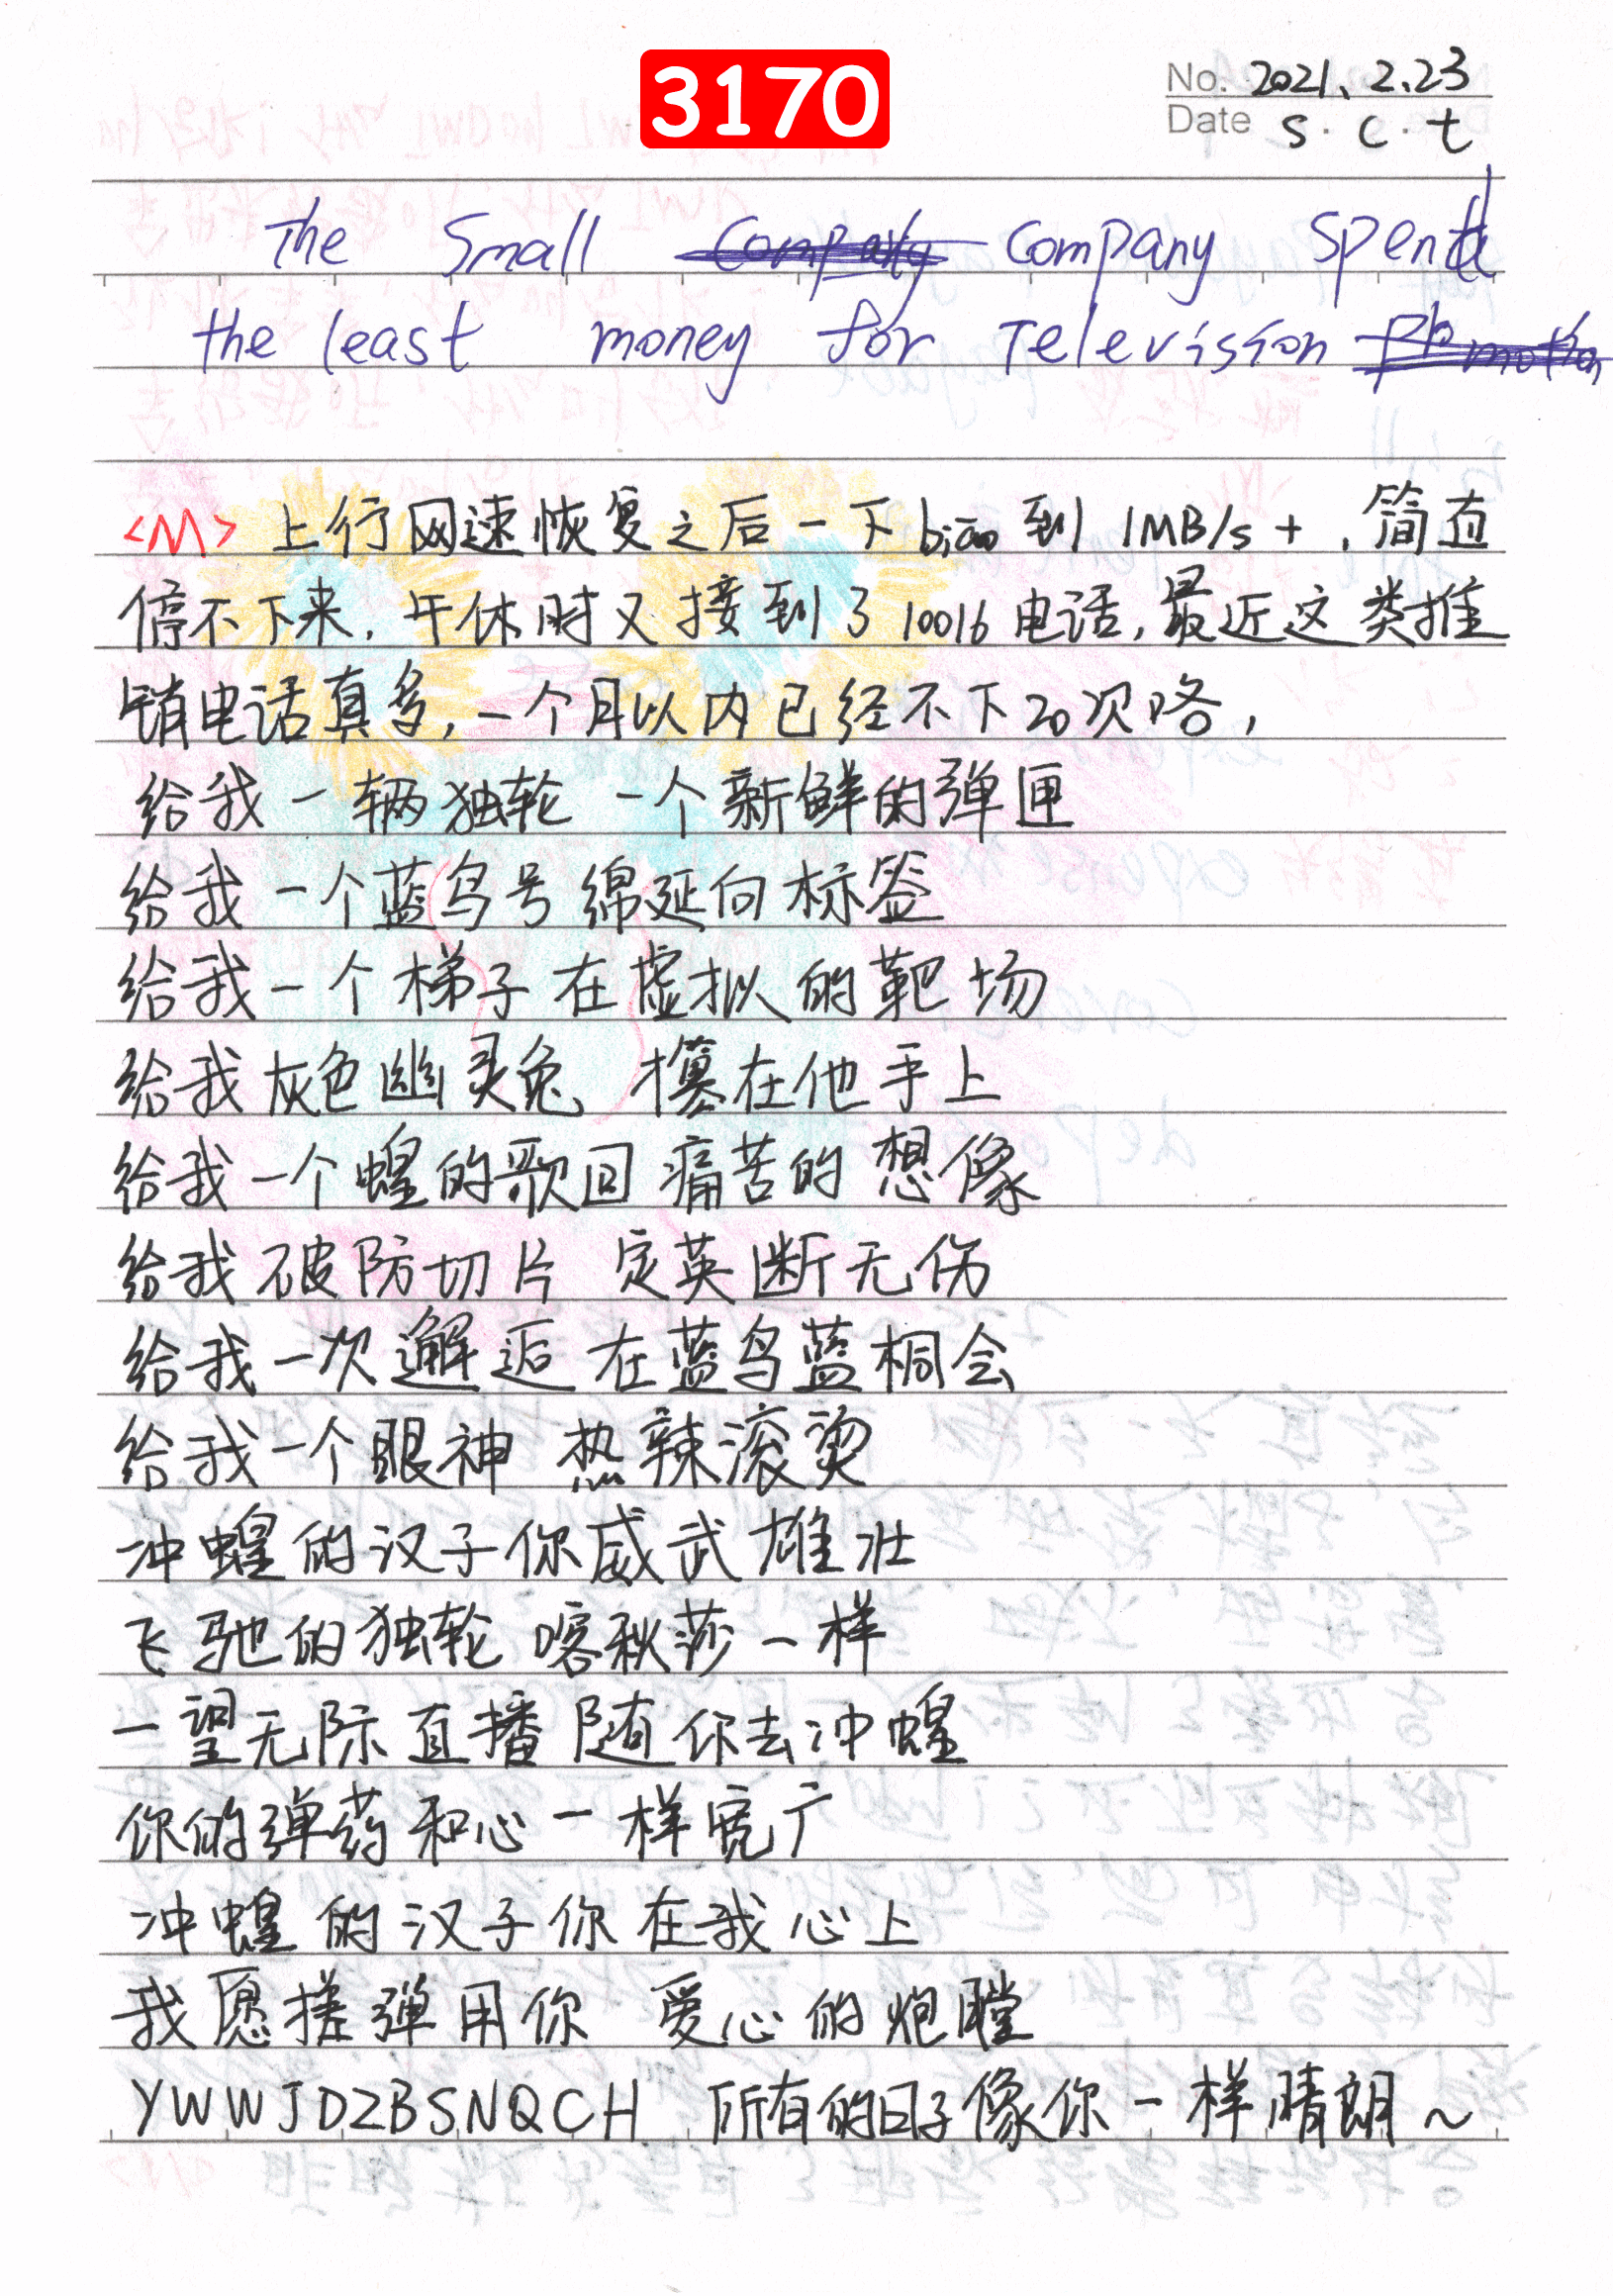 3170
No. 2021.2.23
Date s.c.t
The Small Company Company Spend
the least money for Television
<M> 上行网速恢复之后一下biāo到1MB/s+,简直
停不下来,午休时又接到了10016电话,最近这类推
销电话真多,一个月以内已经不下20次咯,
给我一辆独轮 一个新鲜的弹匣
给我一个蓝鸟号 绵延向标签
给我一个梯子 在虚拟的靶场
给我灰色幽灵兔 攥在他手上
给我一个蝗的歌回 痛苦的想像
给我破防切片 定英断无伤
给我一次邂逅 在蓝鸟蓝桐会
给我一个眼神 热辣滚烫
冲蝗的汉子你威武雄壮
飞驰的独轮 喀秋莎一样
一望无际直播 随你去冲蝗
你的弹药和心一样宽广
冲蝗的汉子你在我心上
我愿搓弹用你 爱心的炮膛
YWWJDZBSNQCH 所有的日子像你一样晴朗~